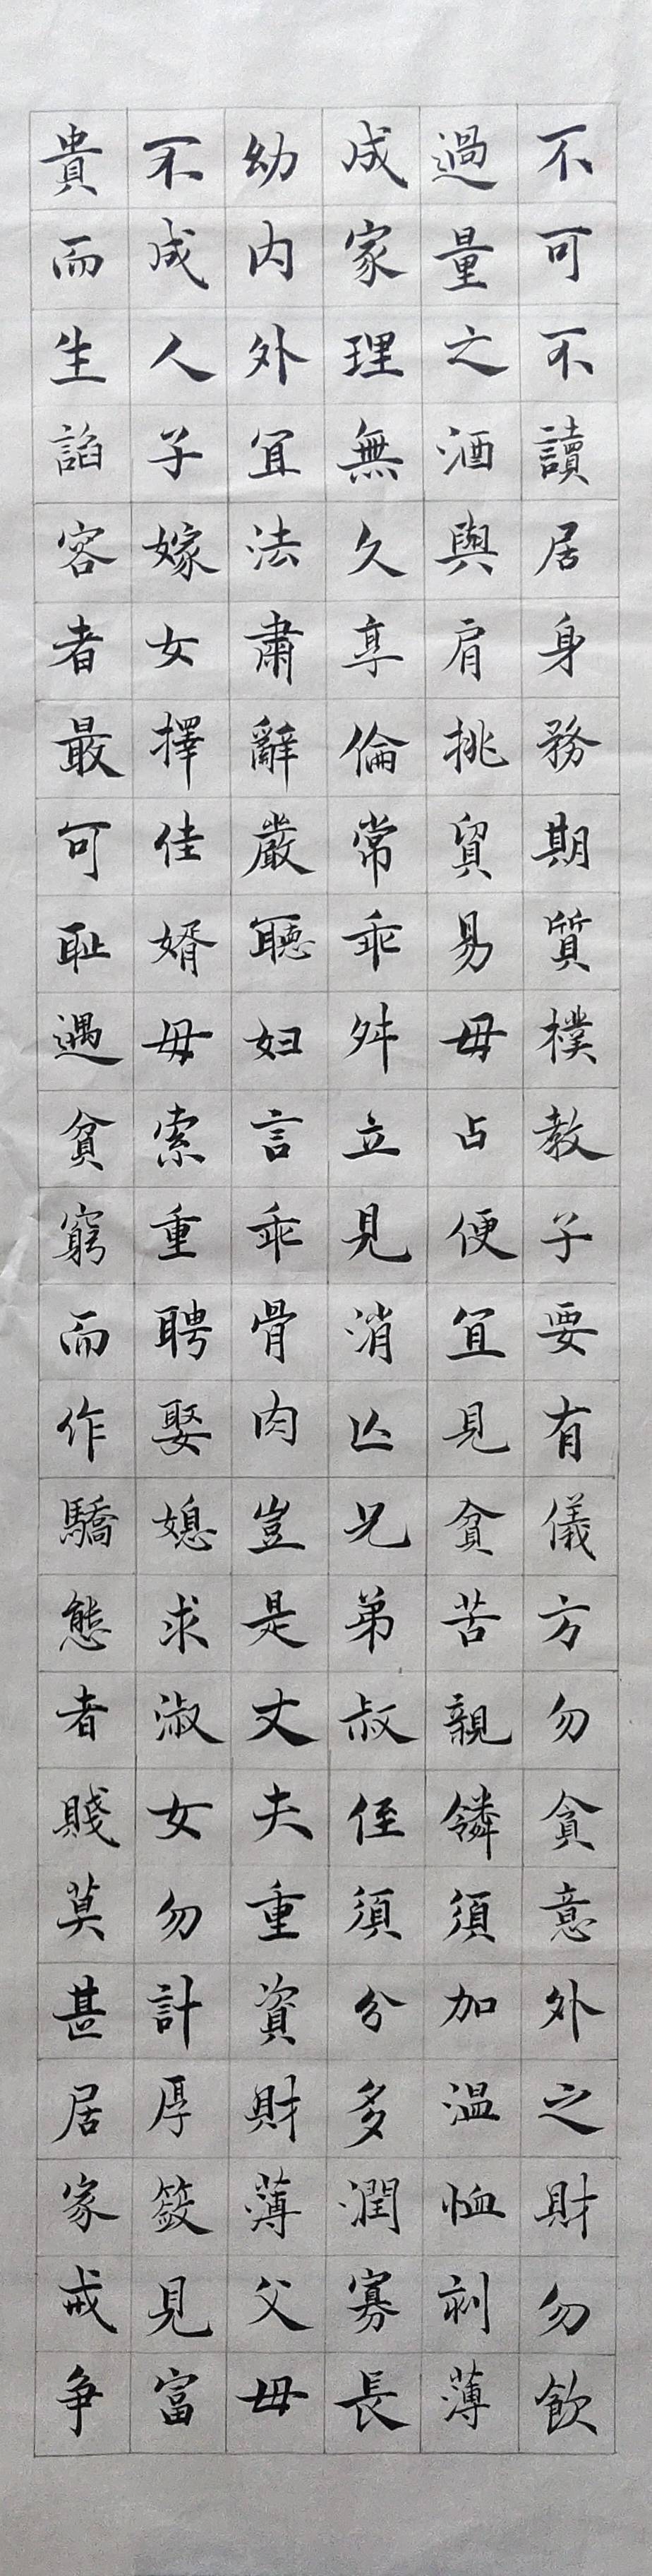 不可不讀居身務期質樸教子要有儀方勿貪意外之財勿飲
過量之酒與肩挑貿易毋占便宜見貧苦親鄰須加溫恤刻薄
成家理無久享倫常乖舛立見消亡兄弟叔侄須分多潤寡長
幼內外宜法肅辭嚴聽婦言乖骨肉豈是丈夫重資財薄父母
不成人子嫁女擇佳婿毋索重聘娶媳求淑女勿計厚奩見富
貴而生諂容者最可恥遇貧窮而作驕態者賤莫甚居家戒爭